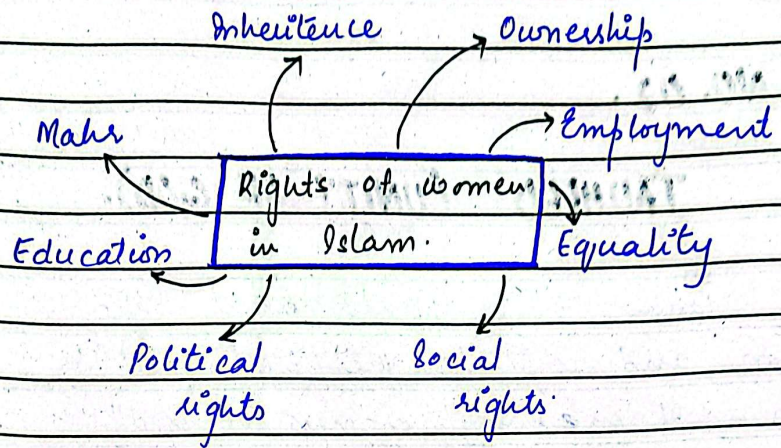 Inheritence
Ownership
Mahr
Employment
Rights of women
in Islam.
Education
Equality
Political
rights
Social
rights